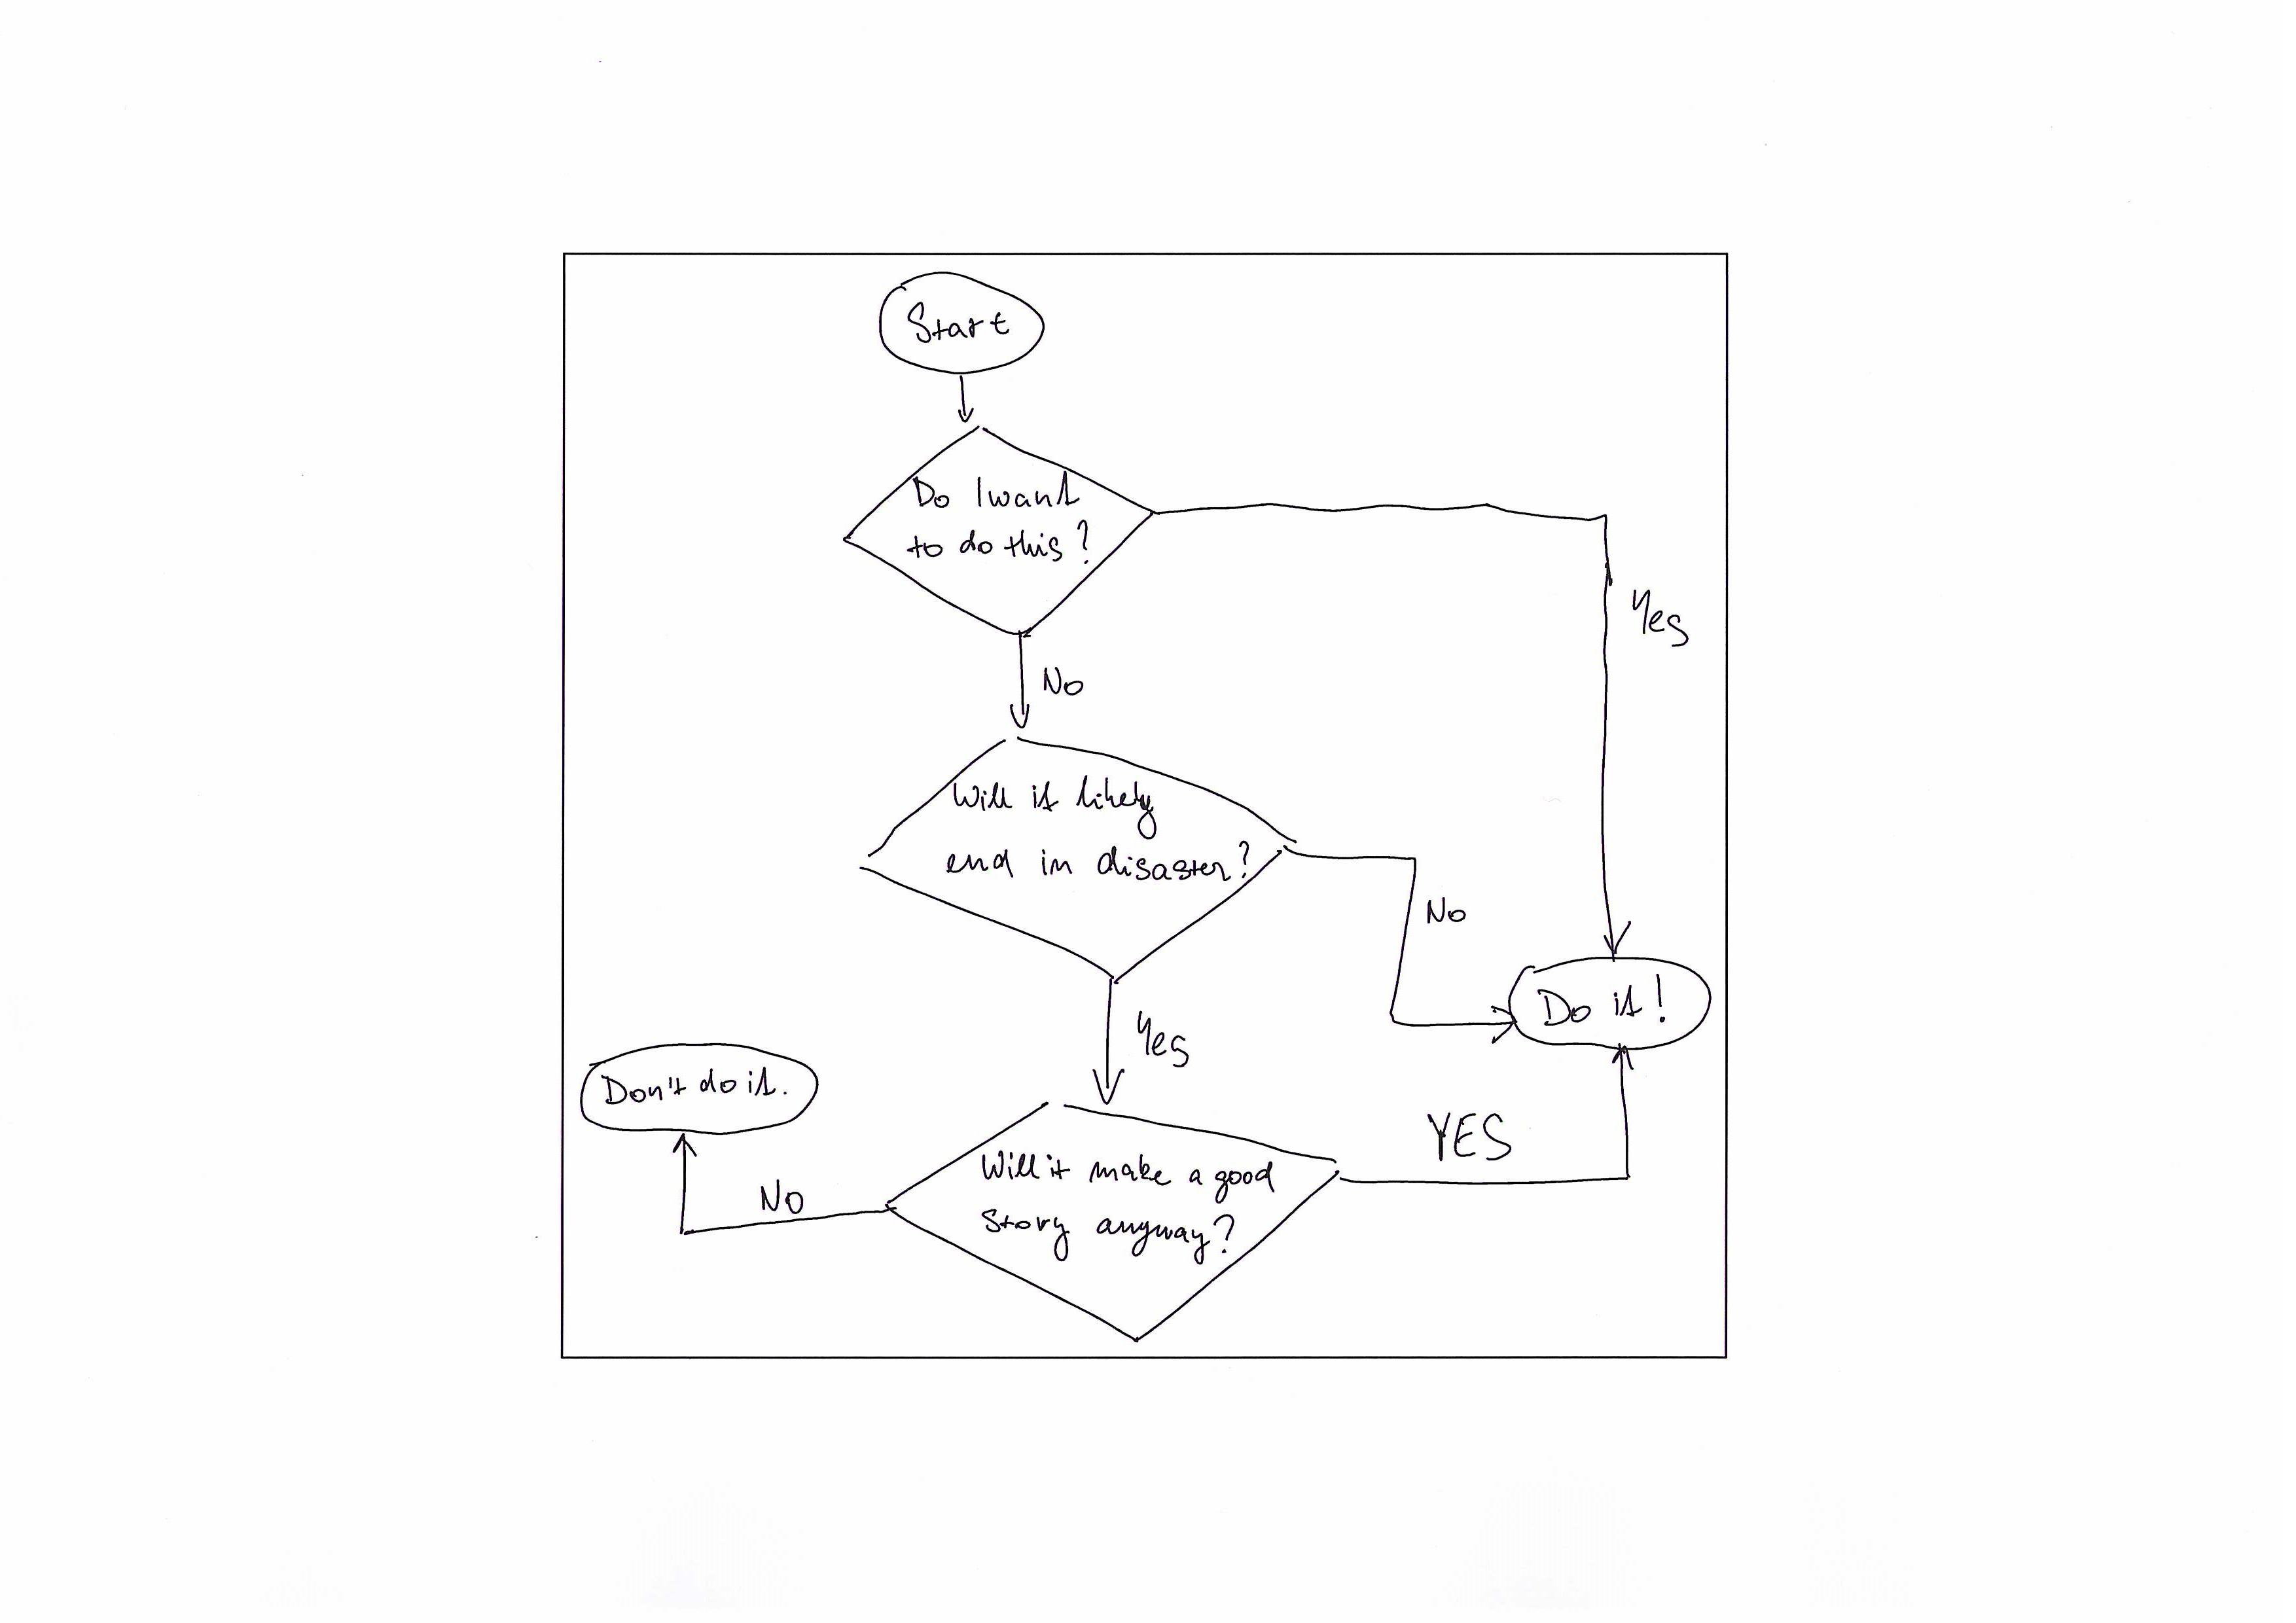 Start
Do I want
to do this?
Yes
No
Will it likely
end in disaster?
No
Do it!
Yes
Don't do it.
YES
Will it make a good
Story anyway?
No